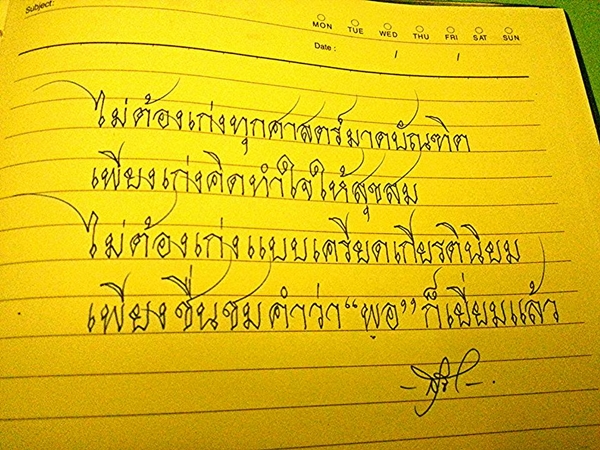 Subject:
MON TUE WED THU FRI SAT SUN
Date : / /
ไม่ต้องเก่งทุกศาสตร์มาดบัณฑิต
เพียงเก่งคิดทำใจให้สุขสม
ไม่ต้องเก่งแบบเครียดเกียรตินิยม
เพียงชื่นชมคำว่า“พอ”ก็เยี่ยมแล้ว